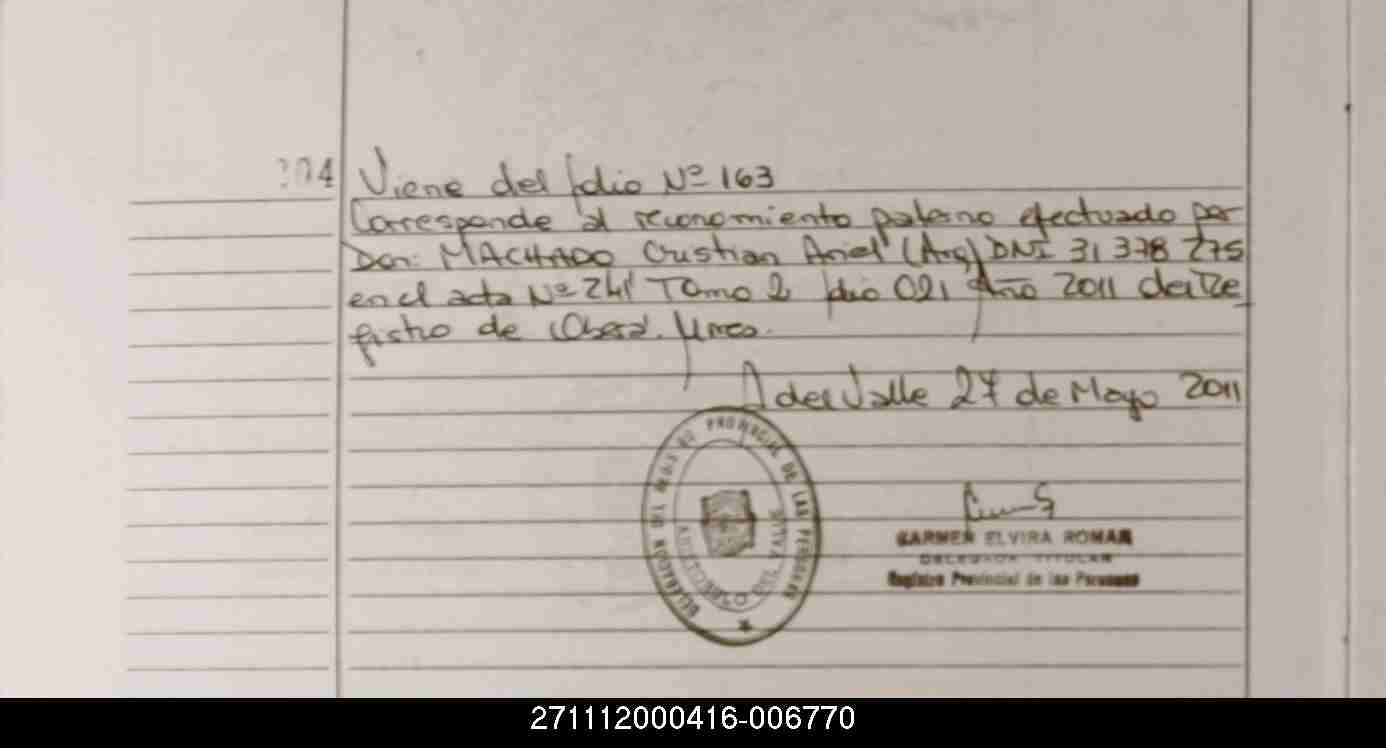 304 Viene del folio Nº 163
Corresponde al reconomiento paterno efectuado por
Don: MACHADO Cristian Ariel (Arg) DNI 31 378 275
en el acta Nº 241 Tomo 2 folio 021 Año 2011 del Re
gistro de Oberá. Mnes.
A del Valle 27 de Mayo 2011
DELEGACION DEL REGISTRO PROVINCIAL DE LAS PERSONAS
ARISTOBULO DEL VALLE
CARMEN ELVIRA ROMAN
DELEGADA TITULAR
Registro Provincial de las Personas
271112000416-006770